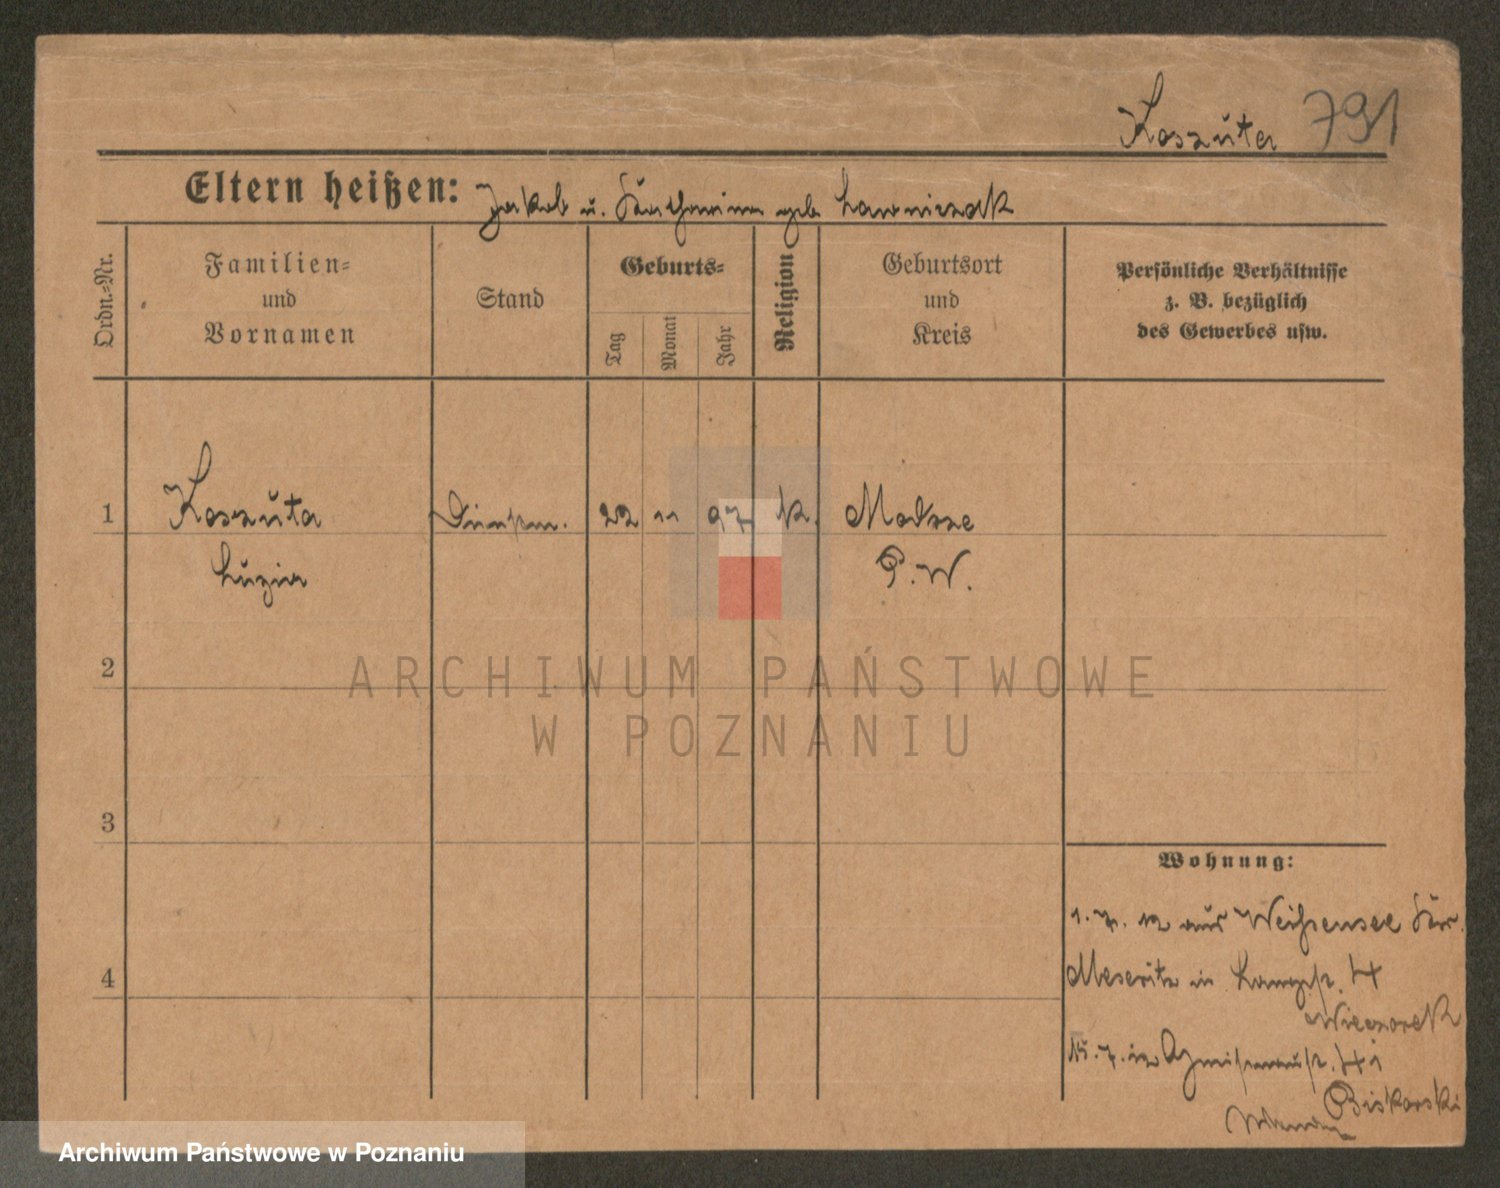 Koszuta 791
Eltern heißen: Jakob u. geb. Lawniczak
Ordn.-Nr.
Familien-
und
Vornamen
Stand
Geburts-
Tag
Monat
Jahr
Religion
Geburtsort
und
Kreis
Persönliche Verhältnisse
z. B. bezüglich
des Gewerbes usw.
1 Koszuta Dienstm. 22 11 97 K.
Luzia P. W.
2
ARCHIWUM PAŃSTWOWE
W POZNANIU
3
Wohnung:
1. 7. 12 aus Weißensee
4 Meseritz in 4
Wieczorek
15. 7. in 41
Biskorski
Archiwum Państwowe w Poznaniu